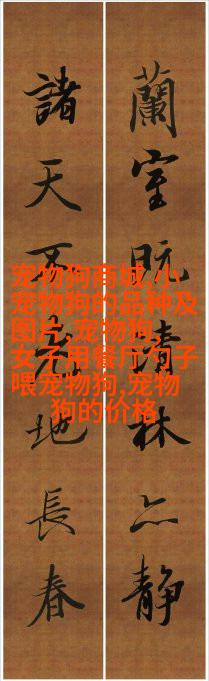 蘭室既清林亦静
諸天不老地長春
宠物狗商城,小
宠物狗的品种及
图片,宠物狗,
女子用餐厅勺子
喂宠物狗,宠物
狗的价格